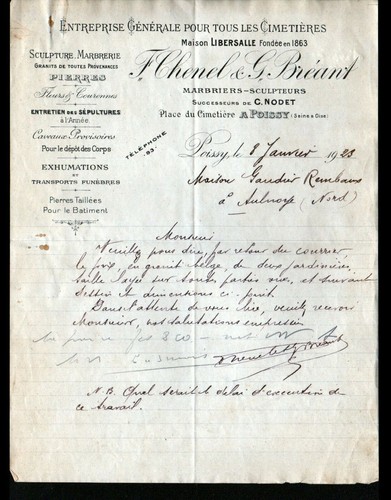 ENTREPRISE GÉNÉRALE POUR TOUS LES CIMETIÈRES
Maison LIBERSALLE Fondée en 1863
F. Chonel & G. Bréant
MARBRIERS-SCULPTEURS
SUCCESSEURS DE C. NODET
Place du Cimetière A POISSY (Seine & Oise)
SCULPTURE, MARBRERIE
GRANITS DE TOUTES PROVENANCES
PIERRES
Fleurs & Couronnes
ENTRETIEN DES SÉPULTURES
à l'Année
Caveaux Provisoires
Pour le dépôt des Corps
EXHUMATIONS
ET
TRANSPORTS FUNÈBRES
Pierres Taillées
Pour le Batiment
TÉLÉPHONE
93
Poissy, le 8 Janvier 1923
Maison Gaudier Rembaux
à Aulnoye (Nord)
Monsieur
Veuillez pour dire, par retour du courrier
le prix, en granit belge, de deux jardinières
taille layée sur toutes parties vues, et suivant
dessin et dimentions ci-joint.
Dans l'attente de vous lire, veuillez recevoir
Monsieur, nos salutations empressées
N.B. Quel serait le délai d'exécution de
ce travail.